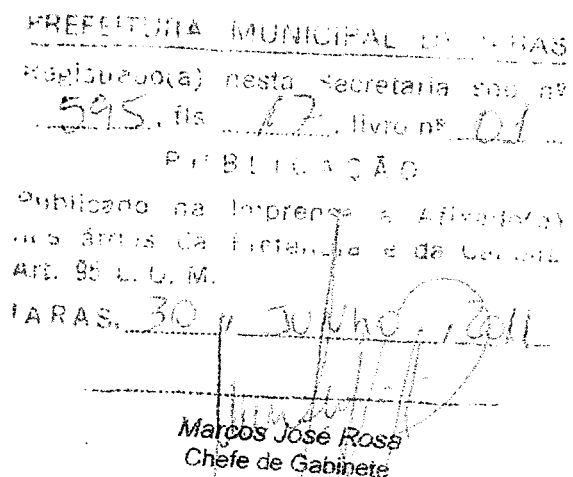 PREFEITURA MUNICIPAL DE IARAS
Registrado(a) nesta Secretaria sob nº
595, fls 17, livro nº 01
PUBLICAÇÃO
Publicado na Imprensa e Afixado(a)
nos átrios da Prefeitura e da
Art. 95 L. O. M.
IARAS, 30, Junho, 2011
Marcos José Rosa
Chefe de Gabinete